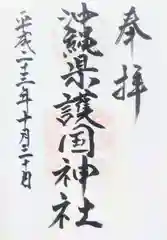 奉拝
沖縄県護国神社
平成二三年十月二十日